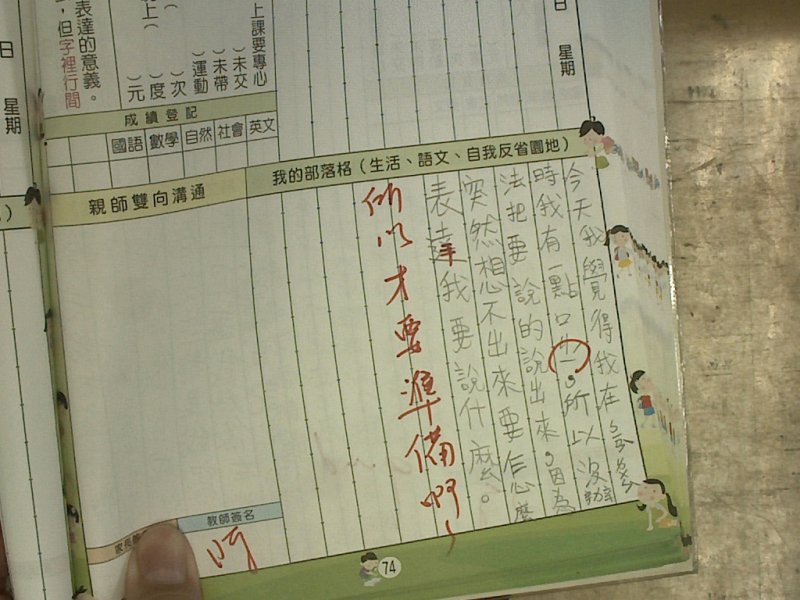 日
星期
表達的意義。
，但字裡行間
上課要專心
）未交
）未帶
）運動
）次
）度
）元
上（
日
星期
成績登記
國語
數學
自然
社會
英文
親師雙向溝通
我的部落格（生活、語文、自我反省園地）
今天我覺得我在
時我有一點口。所以沒辦
法把要說的說出來。因為
突然想不出來要怎麼
表達我要說什麼。
所以才要準備啊~
教師簽名
74